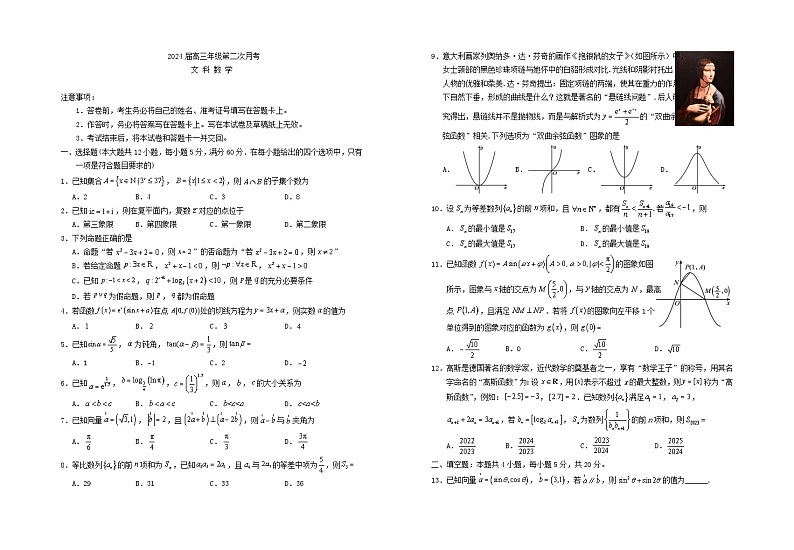 2024届高三年级第二次月考
文 科 数 学
注意事项：
1．答卷前，考生务必将自己的姓名、准考证号填写在答题卡上。
2．作答时，务必将答案写在答题卡上。写在本试卷及草稿纸上无效。
3．考试结束后，将本试卷和答题卡一并交回。
一、选择题(本大题共12小题，每小题5分，满分60分．在每小题给出的四个选项中，只有
一项是符合题目要求的)
1．已知集合A={x∈N|3ˣ≤37}，B={x|1≤x<2}，则A∩B的子集个数为
A．2 B．4 C．3 D．8
2．已知iz=1+i，则在复平面内，复数z对应的点位于
A．第三象限 B．第四象限 C．第一象限 D．第二象限
3．下列命题正确的是
A．命题“若x²-3x+2=0，则x=2”的否命题为“若x²-3x+2=0，则x≠2”
B．若给定命题p:∃x∈R，x²+x-1<0，则¬p:∀x∈R，x²+x-1>0
C．已知p:-1<x<2，则p是q的充分必要条件
D．若p∨q为假命题，则p，q都为假命题
4．若函数f(x)=eˣ(sinx+a)在点A(0,f(0))处的切线方程为y=3x+a，则实数a的值为
A．1 B．2 C．3 D．4
5．已知sinα=√5/5，α为钝角，tan(α-β)=1/3，则tanβ=
A．1 B．-1 C．2 D．-2
6．已知，则a，b，c的大小关系为
A．a<b<c B．a<c<b C．b<c<a D．c<a<b
7．已知向量a=(√3,1)，|b|=2，且(2a+b)⊥(a-2b)，则a-b与b夹角为
A．π/6 B．π/4 C．π/3 D．3π/4
8．等比数列{aₙ}的前n项和为Sₙ，已知a₂a₃=2a₁，且a₄与2a₇的等差中项为5/4，则S₅=
A．29 B．31 C．33 D．36
9．意大利画家列奥纳多·达·芬奇的画作《抱银鼠的女子》(如图所示)中，
女士颈部的黑色珍珠项链与她怀中的白貂形成对比．光线和阴影衬托出
人物的优雅和柔美．达·芬奇提出：固定项链的两端，使其在重力的作用
下自然下垂，形成的曲线是什么？这就是著名的“悬链线问题”．后人研
究得出，悬链线并不是抛物线，而是与解析式为y=(eˣ+e⁻ˣ)/2的“双曲余
弦函数”相关．下列选项为“双曲余弦函数”图象的是
A． B． C． D．
10．设Sₙ为等差数列{aₙ}的前n项和，且∀n∈N*，都有Sₙ/n<Sₙ₊₁/(n+1)．若a₁₈/a₁₇<-1，则
A．Sₙ的最小值是S₁₇ B．Sₙ的最小值是S₁₈
C．Sₙ的最大值是S₁₇ D．Sₙ的最大值是S₁₈
11．已知函数f(x)=Asin(ωx+φ)(A>0,ω>0,|φ|<π/2)的图象如图
所示，图象与x轴的交点为M(5/2,0)，与y轴的交点为N，最高
点P(1,A)，且满足NM⊥NP．若将f(x)的图象向左平移1个
单位得到的图象对应的函数为g(x)，则g(0)=
A．-√10/2 B．0 C．√10/2 D．√10
12．高斯是德国著名的数学家，近代数学的奠基者之一，享有“数学王子”的称号，用其名
字命名的“高斯函数”为：设x∈R，用[x]表示不超过x的最大整数，则y=[x]称为“高
斯函数”，例如：[-2.5]=-3，[2.7]=2．已知数列{aₙ}满足a₁=1，a₂=3，
aₙ₊₂+2aₙ=3aₙ₊₁，若bₙ=[log₂aₙ₊₁]，Sₙ为数列{1/(bₙbₙ₊₁)}的前n项和，则S₂₀₂₃=
A．2022/2023 B．2024/2023 C．2023/2024 D．2025/2024
二、填空题：本题共4小题，每小题5分，共20分。
13．已知向量a=(sinθ,cosθ)，b=(3,1)，若a∥b，则sin²θ+sin2θ的值为______．